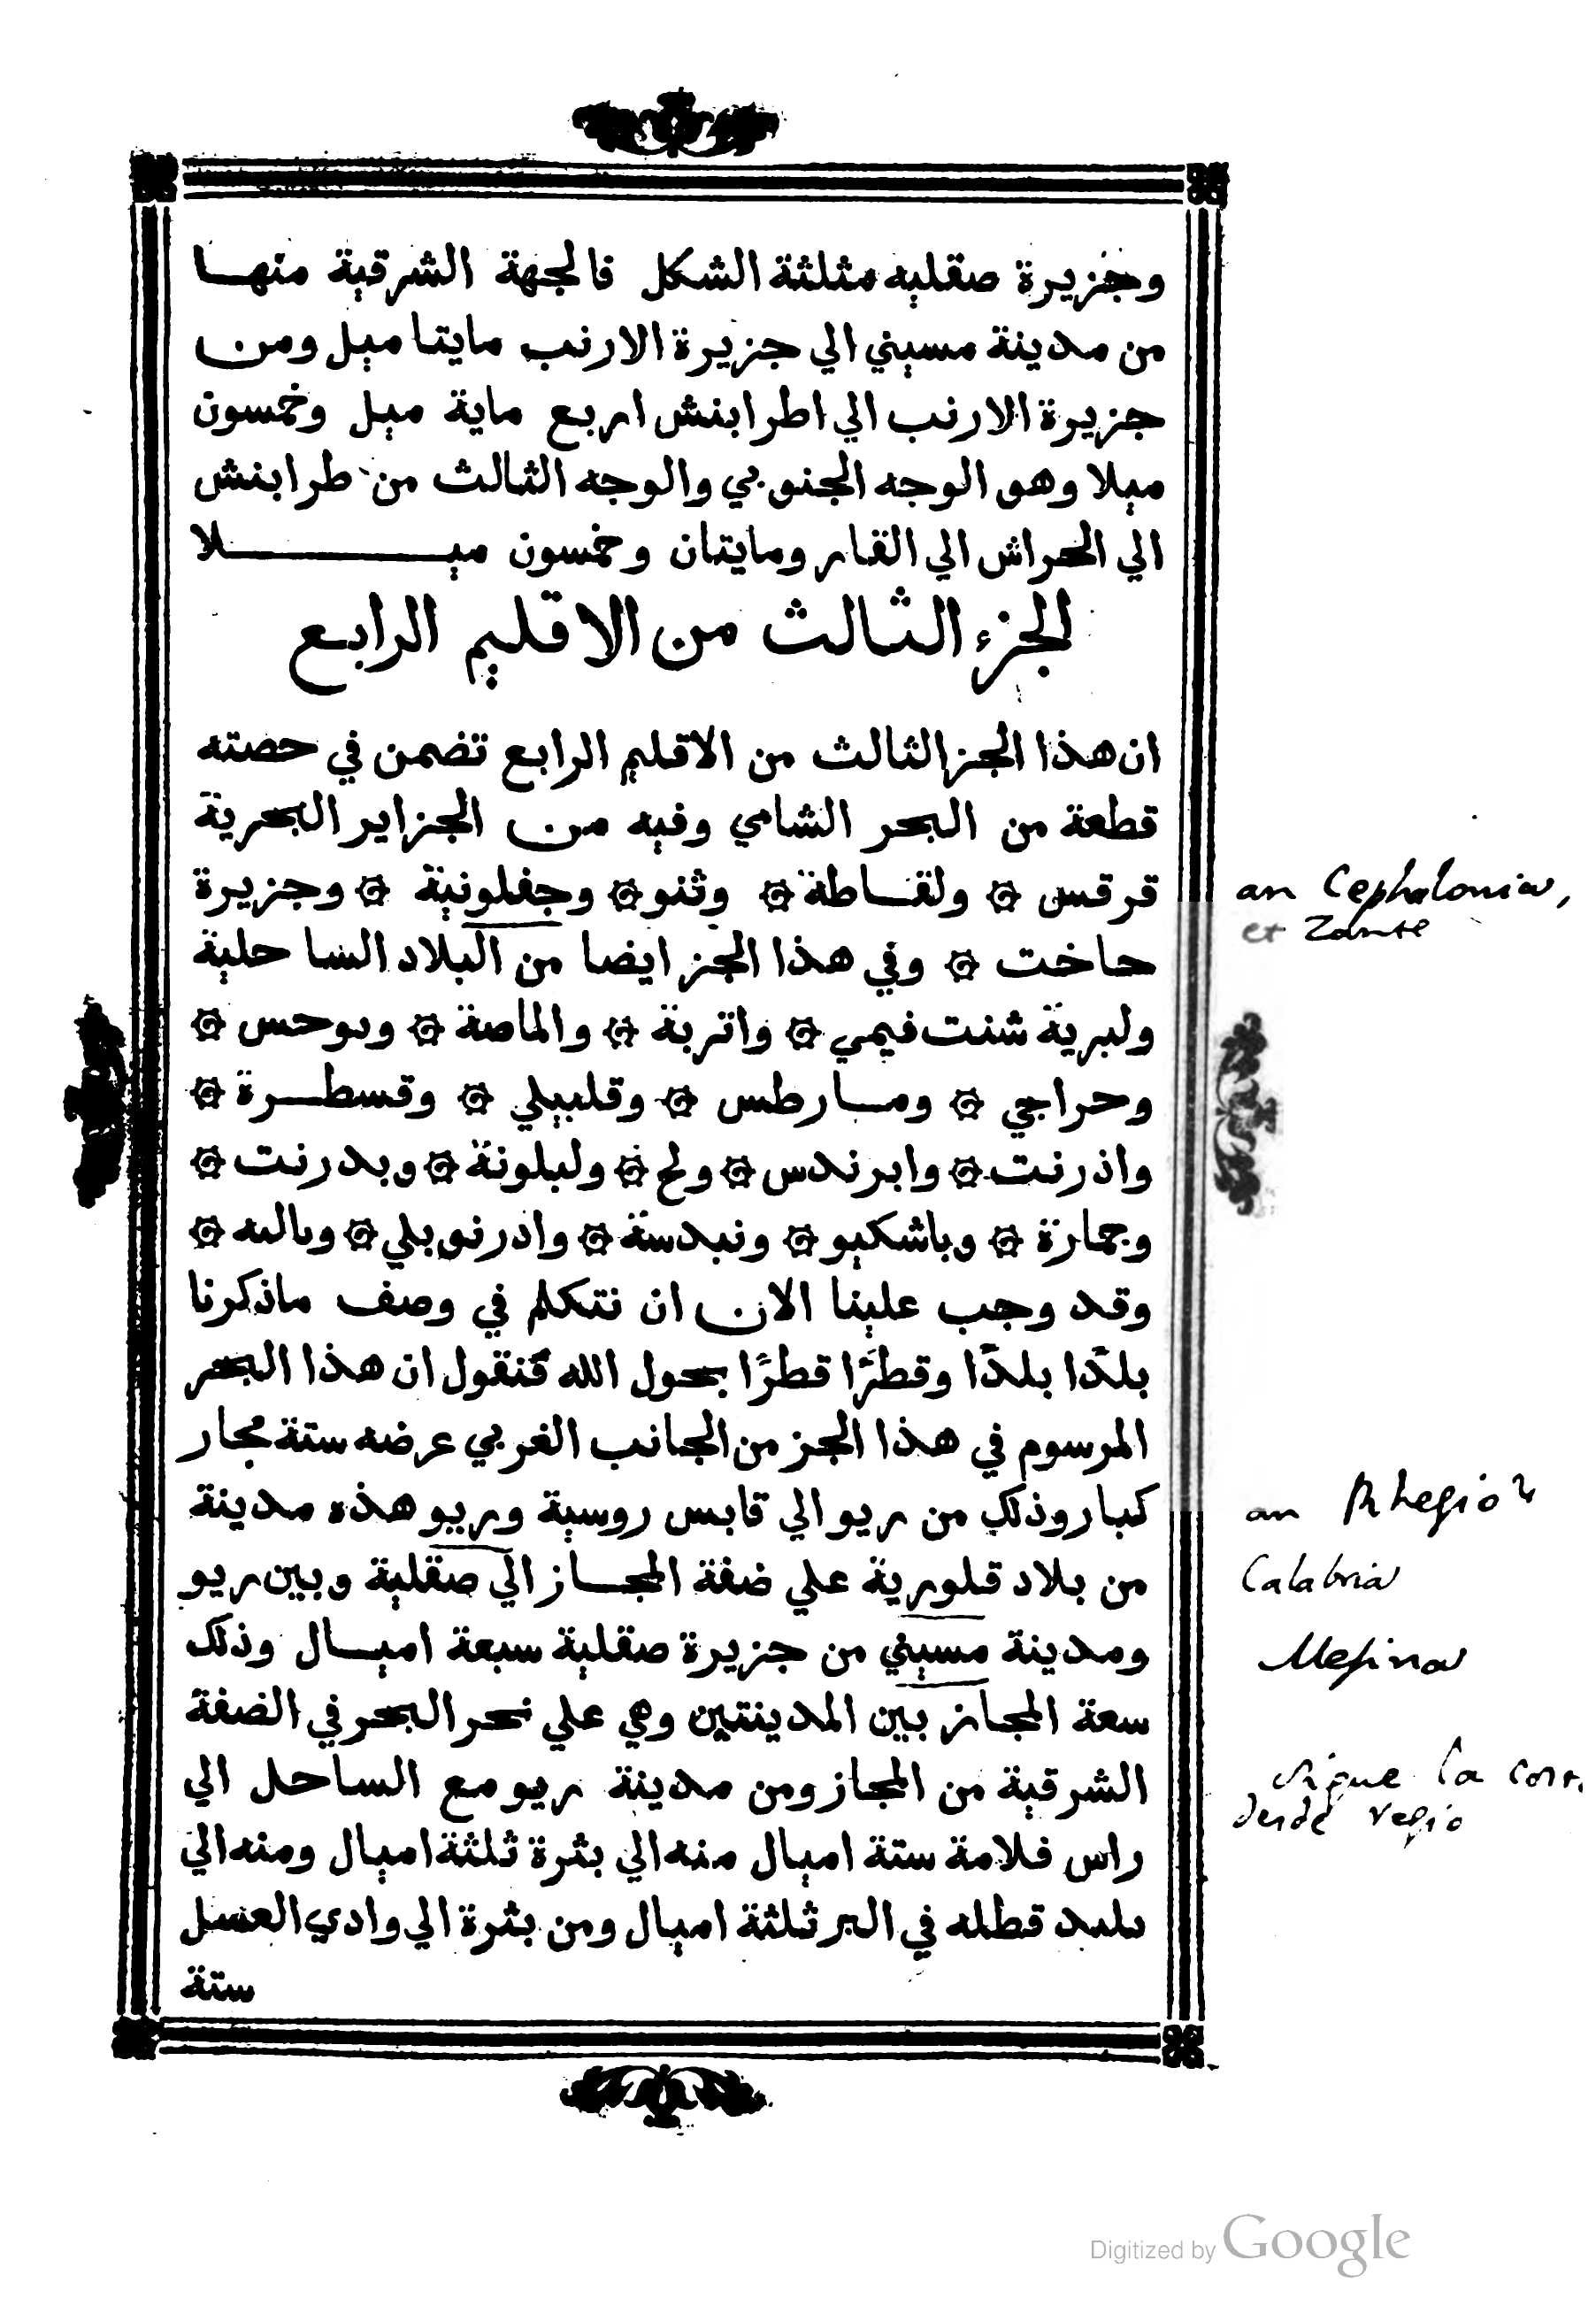 وجزيرة صقليه مثلثة الشكل فالجهة الشرقية منهـا
من مدينة مسيني الي جزيرة الارنب مايتا ميل ومن
جزيرة الارنب الي اطرابنش اربع ماية ميل وخمسون
ميلا وهو الوجه الجنوبي والوجه الثالث من طرابنش
الي الحراش الي الفار ومايتان وخمسون ميـــلا
الجزء الثالث من الاقليم الرابع
ان هذا الجز الثالث من الاقليم الرابع تضمن في حصته
قطعة من البحر الشامي وفيه من الجزاير البحرية
قرقس ۞ ولقـاطة ۞ وثنو ۞ وجفلونية ۞ وجزيرة
an Cephalonia,
et Zante
حاخت ۞ وفي هذا الجز ايضا من البلاد الساحلية
ولبرية شنت فيمي ۞ واتربة ۞ والماصة ۞ وٮوحس ۞
وحراجي ۞ ومـارطس ۞ وقلبيلي ۞ وقسطـرة ۞
واذرنت ۞ وابرندس ۞ ولج ۞ ولبلونة ۞ وبدرنت ۞
وجمارة ۞ وباشكيو ۞ ونبدسة ۞ وادرنوبلي ۞ وٮالٮه ۞
وقد وجب علينا الان ان نتكلم في وصف ماذكرنا
بلدًا بلدًا وقطرًا قطرًا بحول الله فنقول ان هذا البحر
المرسوم في هذا الجز من الجانب الغربي عرضه ستة مجار
كبار وذلك من ريو الي قابس روسية وريو هذه مدينة
an Rhegio
من بلاد قلورية علي ضفة المجـاز الي صقلية وبين ريو
Calabria
ومدينة مسيني من جزيرة صقلية سبعة اميـال وذلك
Mesina
سعة المجاز بين المدينتين وهي علي نحر البحر في الضفة
الشرقية من المجاز ومن مدينة ريو مع الساحل الي
sigue la cost
desde regio
راس فلامة ستة اميال منه الي بثرة ثلثة اميال ومنه الي
ٮلٮد قطله في البر ثلثة اميال ومن بثرة الي وادي العسل
ستة
Digitized by Google